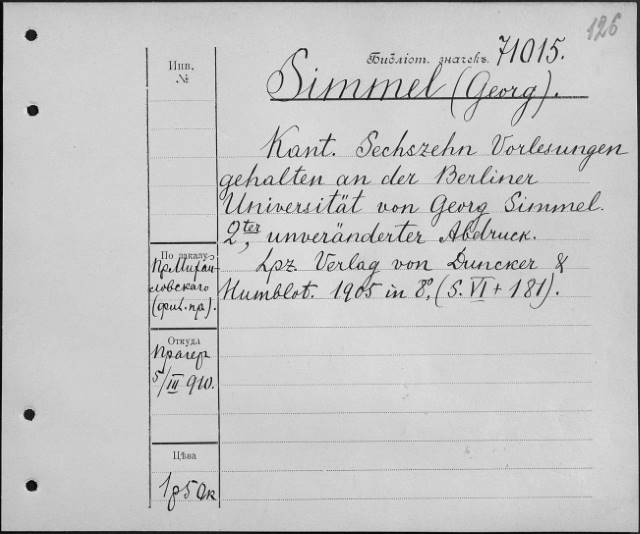 126
Библіот. значекъ 71015.
Инв.
№
Simmel (Georg).
Kant. Sechszehn Vorlesungen
gehalten an der Berliner
Universität von Georg Simmel.
2ter, unveränderter Abdruck.
Lpz. Verlag von Duncker &
Humblot. 1905 in 8º, (S. VI + 181).
По заказу
Пр. Михай-
ловскаго
(фил. пр.).
Откуда
Прагер
5/III 910.
Цѣва
1р50к